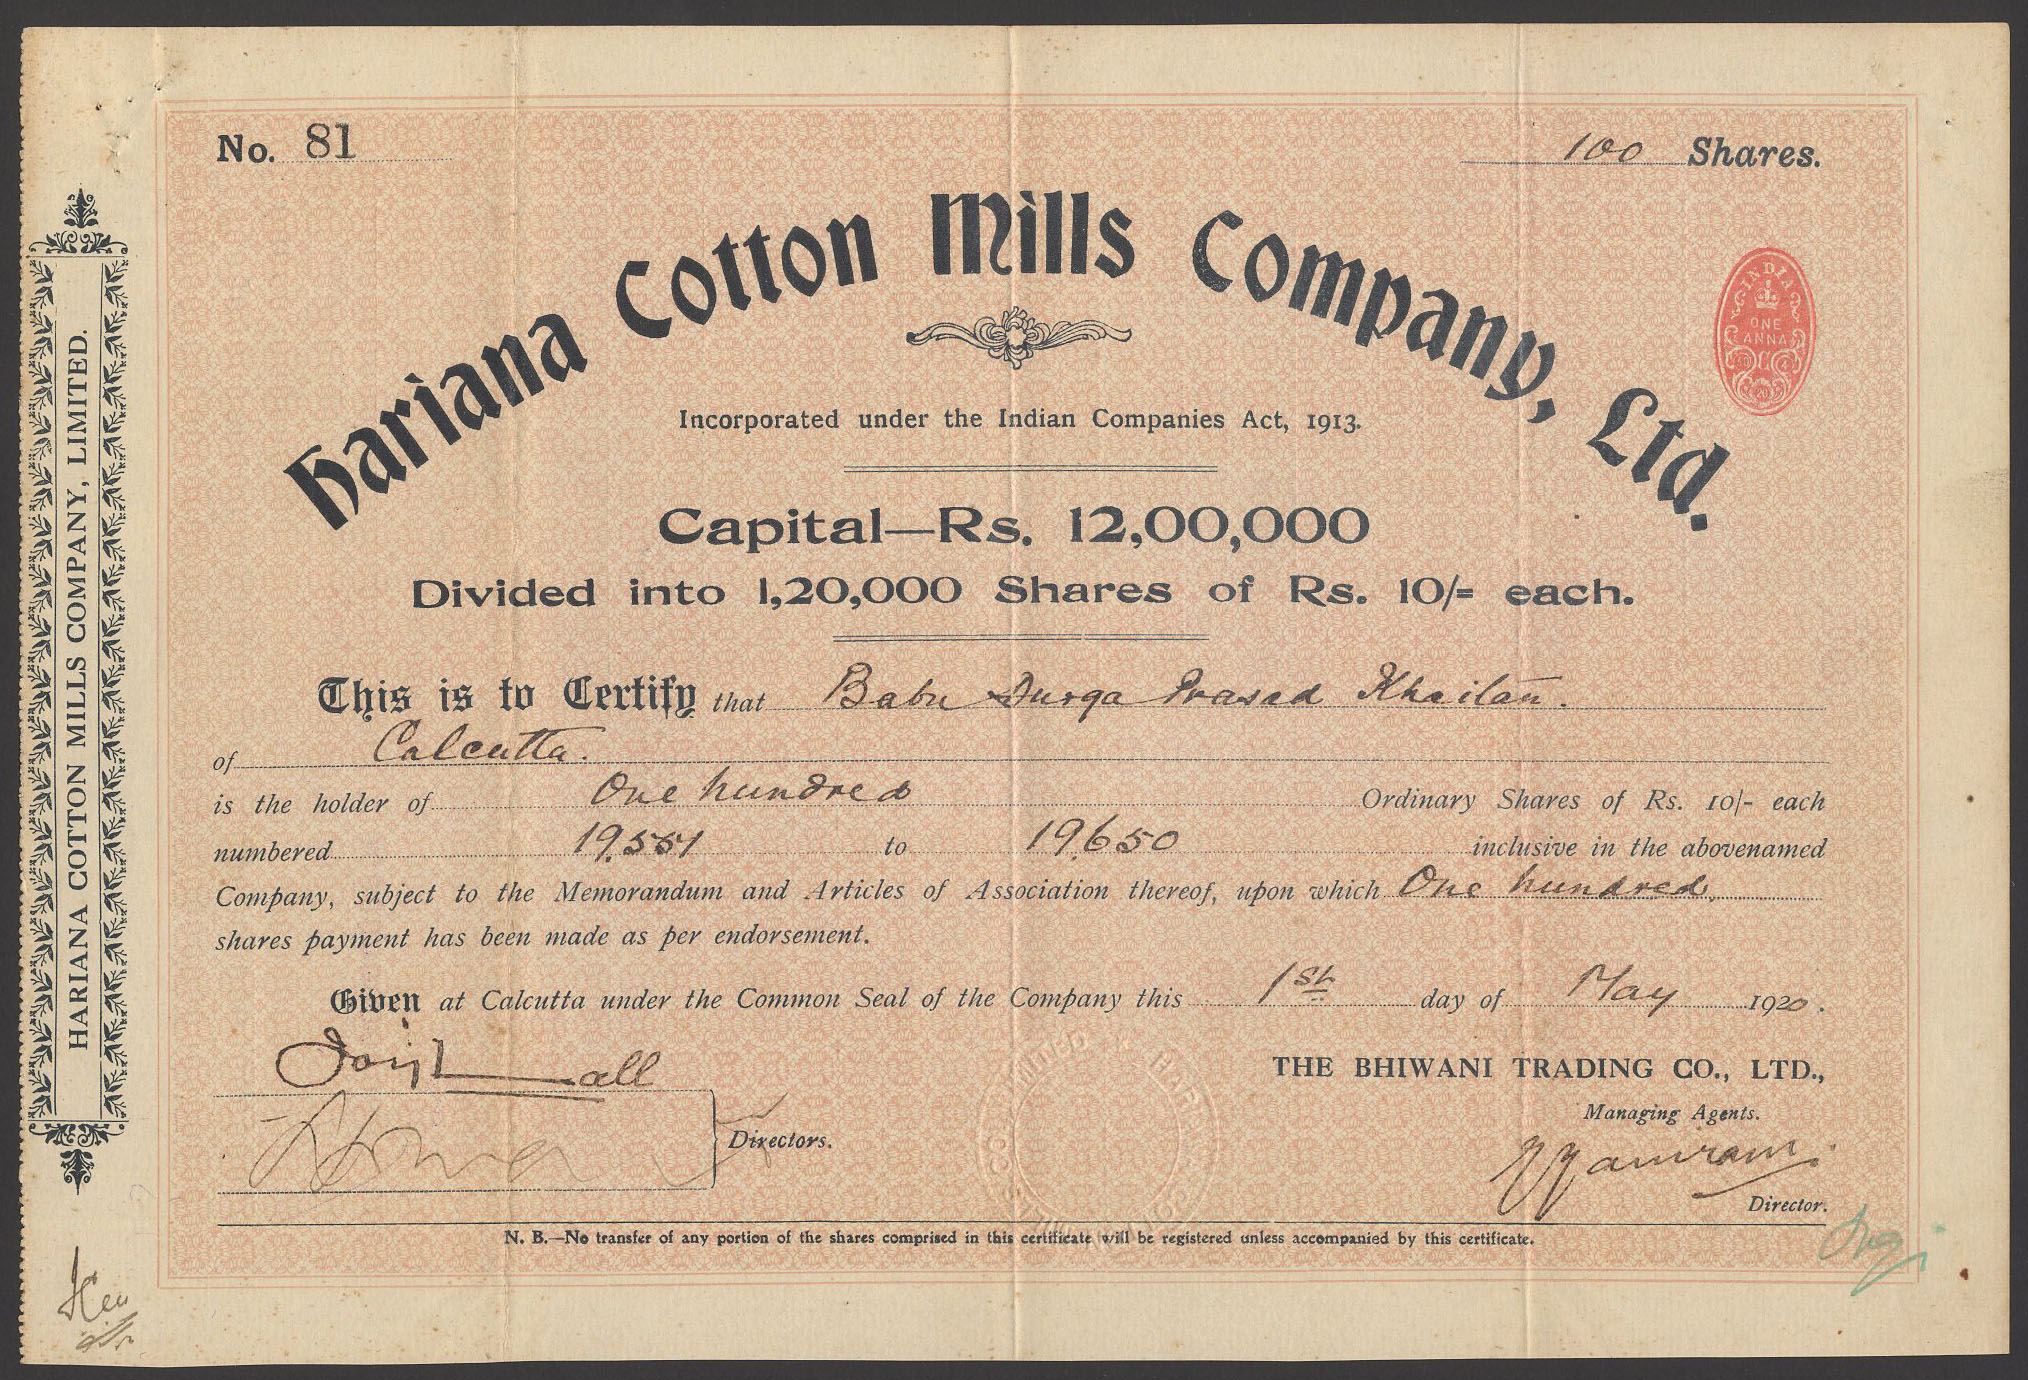 No. 81
100 Shares.
Hariana Cotton Mills Company, Ltd.
INDIA
ONE
ANNA
Incorporated under the Indian Companies Act, 1913.
Capital—Rs. 12,00,000
Divided into 1,20,000 Shares of Rs. 10/= each.
This is to Certify that Babu Durga Prasad Khaitan.
of Calcutta.
is the holder of One hundred Ordinary Shares of Rs. 10/- each
numbered 19,551 to 19,650 inclusive in the abovenamed
Company, subject to the Memorandum and Articles of Association thereof, upon which One hundred,
shares payment has been made as per endorsement.
Given at Calcutta under the Common Seal of the Company this 1st day of May 1920.
THE BHIWANI TRADING CO., LTD.,
Managing Agents.
Directors.
Director.
N. B.—No transfer of any portion of the shares comprised in this certificate will be registered unless accompanied by this certificate.
HARIANA COTTON MILLS COMPANY, LIMITED.